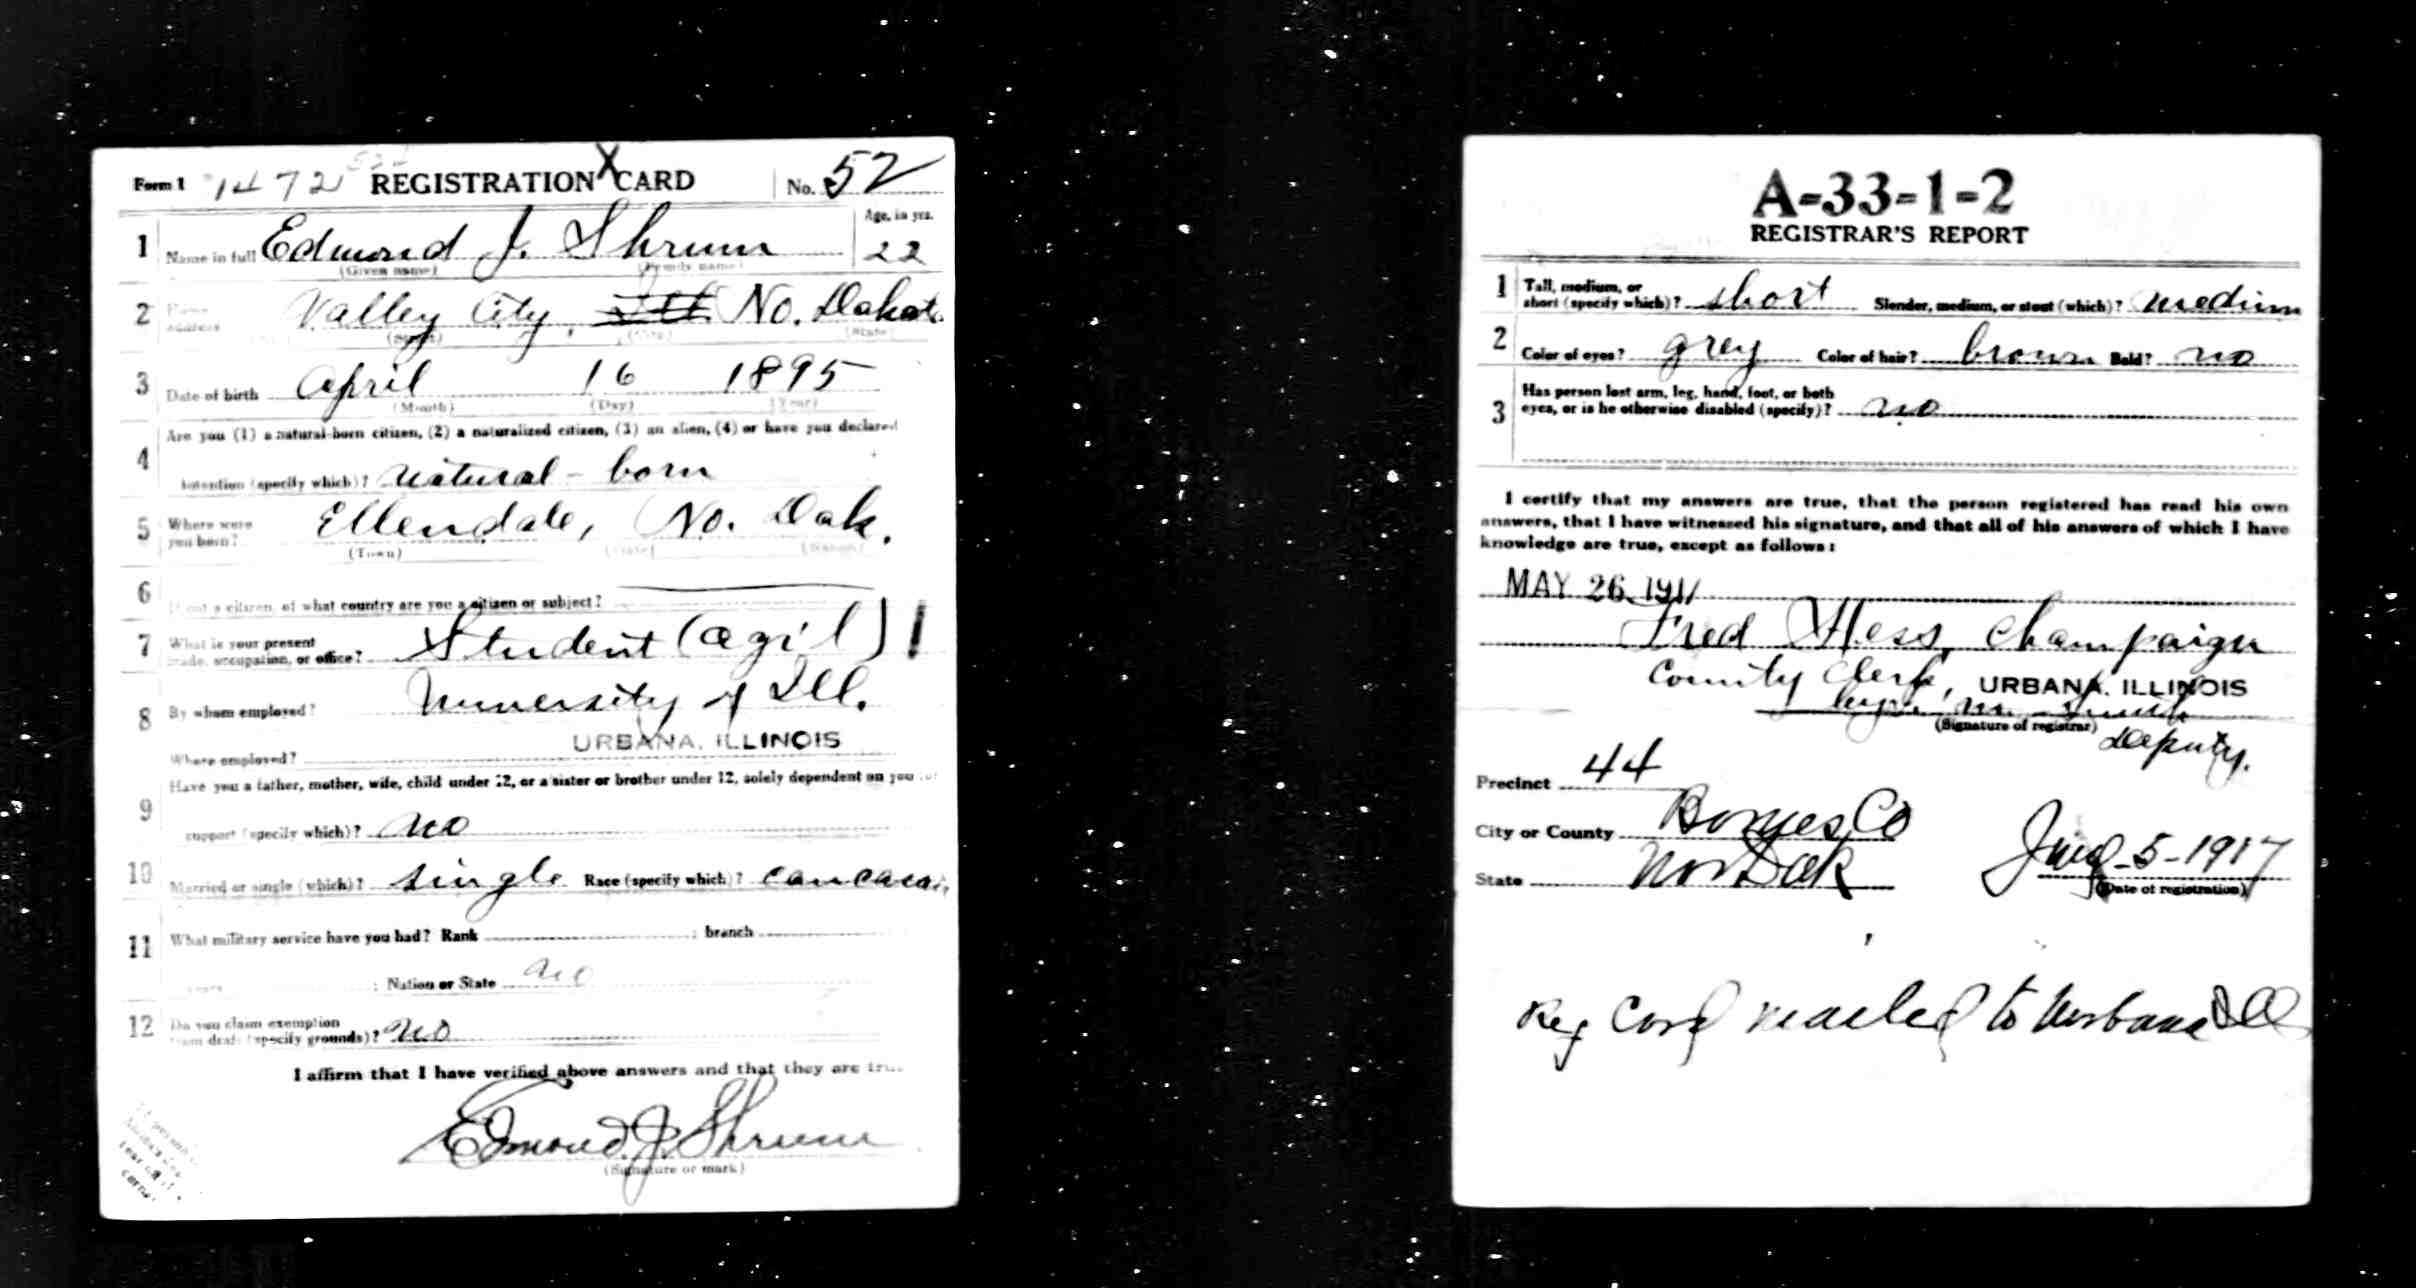 Form 1 1472 REGISTRATION CARD No. 52
1 Name in full Edmond J. Shrum Age, in yrs. 22
(Given name) (Family name)
2 Home address Valley City, Ill No. Dakot.
(Street) (City) (State)
3 Date of birth April 16 1895
(Month) (Day) (Year)
4 Are you (1) a natural-born citizen, (2) a naturalized citizen, (3) an alien, (4) or have you declared
intention (specify which)? natural-born
5 Where were you born? Ellendale, No. Dak.
(Town) (State) (Nation)
6 If not a citizen, of what country are you a citizen or subject?
7 What is your present
trade, occupation, or office? Student (agi'l)
8 By whom employed? University of Ill.
Where employed? URBANA, ILLINOIS
9 Have you a father, mother, wife, child under 12, or a sister or brother under 12, solely dependent on you for
support (specify which)? no
10 Married or single (which)? single Race (specify which)? caucasi
11 What military service have you had? Rank ; branch
years ; Nation or State no
12 Do you claim exemption
from draft (specify grounds)? no
I affirm that I have verified above answers and that they are true.
Edmond J. Shrum
(Signature or mark)
A-33-1-2
REGISTRAR'S REPORT
1 Tall, medium, or
short (specify which)? short Slender, medium, or stout (which)? medium
2 Color of eyes? grey Color of hair? brown Bald? no
3 Has person lost arm, leg, hand, foot, or both
eyes, or is he otherwise disabled (specify)? no
I certify that my answers are true, that the person registered has read his own
answers, that I have witnessed his signature, and that all of his answers of which I have
knowledge are true, except as follows:
MAY 26 191
Fred Hess, Champaign
County Clerk, URBANA, ILLINOIS
by M.
(Signature of registrar) Deputy.
Precinct 44
City or County Barnes Co
State Nor Dak June-5-1917
(Date of registration)
Reg Card mailed to Urbana Ill